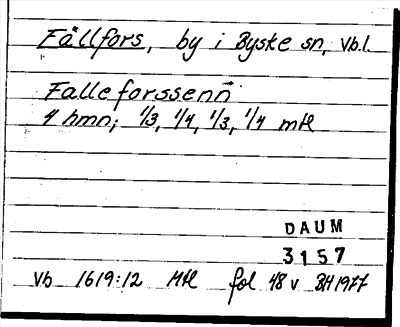 Fällfors, by i Byske sn, Vb.l.
Falleforssenn
4 hmn; 1/3, 1/4, 1/3, 1/4 mtl
DAUM
3157
Vb 1619:12 Mtl fol 48 v BH 1977